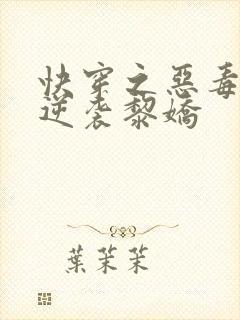 快穿之惡毒
逆袭黎嬌
葉茉茉